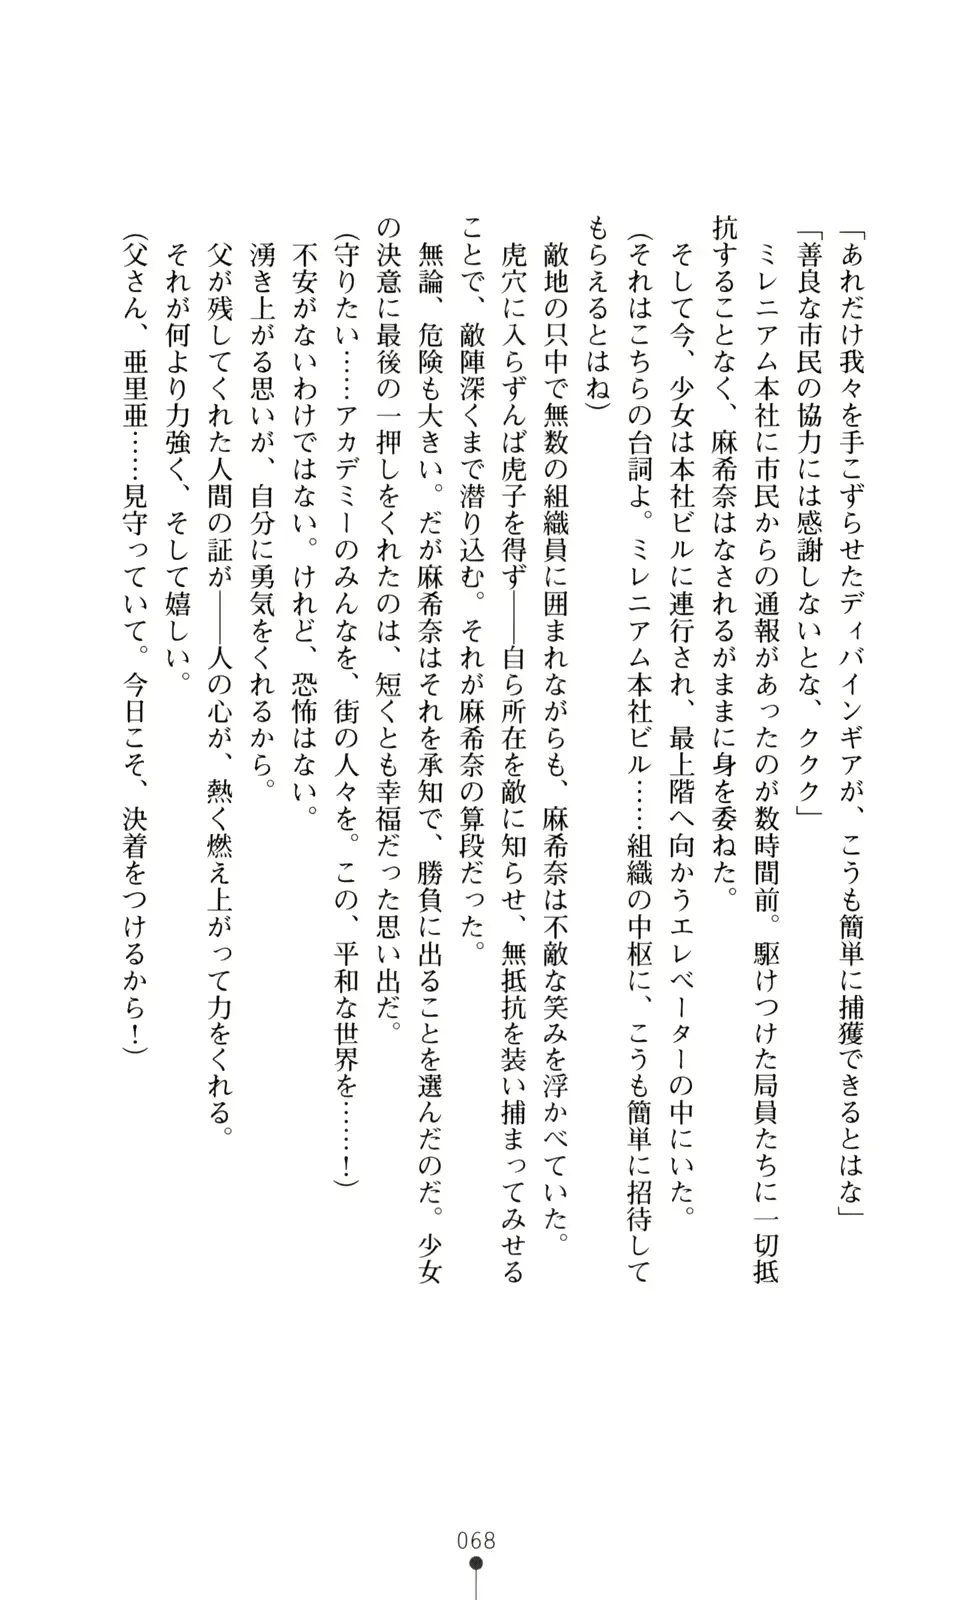 「あれだけ我々を手こずらせたディバインギアが、こうも簡単に捕獲できるとはな」
「善良な市民の協力には感謝しないとな、ククク」
ミレニアム本社に市民からの通報があったのが数時間前。駆けつけた局員たちに一切抵
抗することなく、麻希奈はなされるがままに身を委ねた。
そして今、少女は本社ビルに連行され、最上階へ向かうエレベーターの中にいた。
(それはこちらの台詞よ。ミレニアム本社ビル……組織の中枢に、こうも簡単に招待して
もらえるとはね)
敵地の只中で無数の組織員に囲まれながらも、麻希奈は不敵な笑みを浮かべていた。
虎穴に入らずんば虎子を得ず――自ら所在を敵に知らせ、無抵抗を装い捕まってみせる
ことで、敵陣深くまで潜り込む。それが麻希奈の算段だった。
無論、危険も大きい。だが麻希奈はそれを承知で、勝負に出ることを選んだのだ。少女
の決意に最後の一押しをくれたのは、短くとも幸福だった思い出だ。
(守りたい……アカデミーのみんなを、街の人々を。この、平和な世界を……！)
不安がないわけではない。けれど、恐怖はない。
湧き上がる思いが、自分に勇気をくれるから。
父が残してくれた人間の証が――人の心が、熱く燃え上がって力をくれる。
それが何より力強く、そして嬉しい。
(父さん、亜里亜……見守っていて。今日こそ、決着をつけるから！)
068